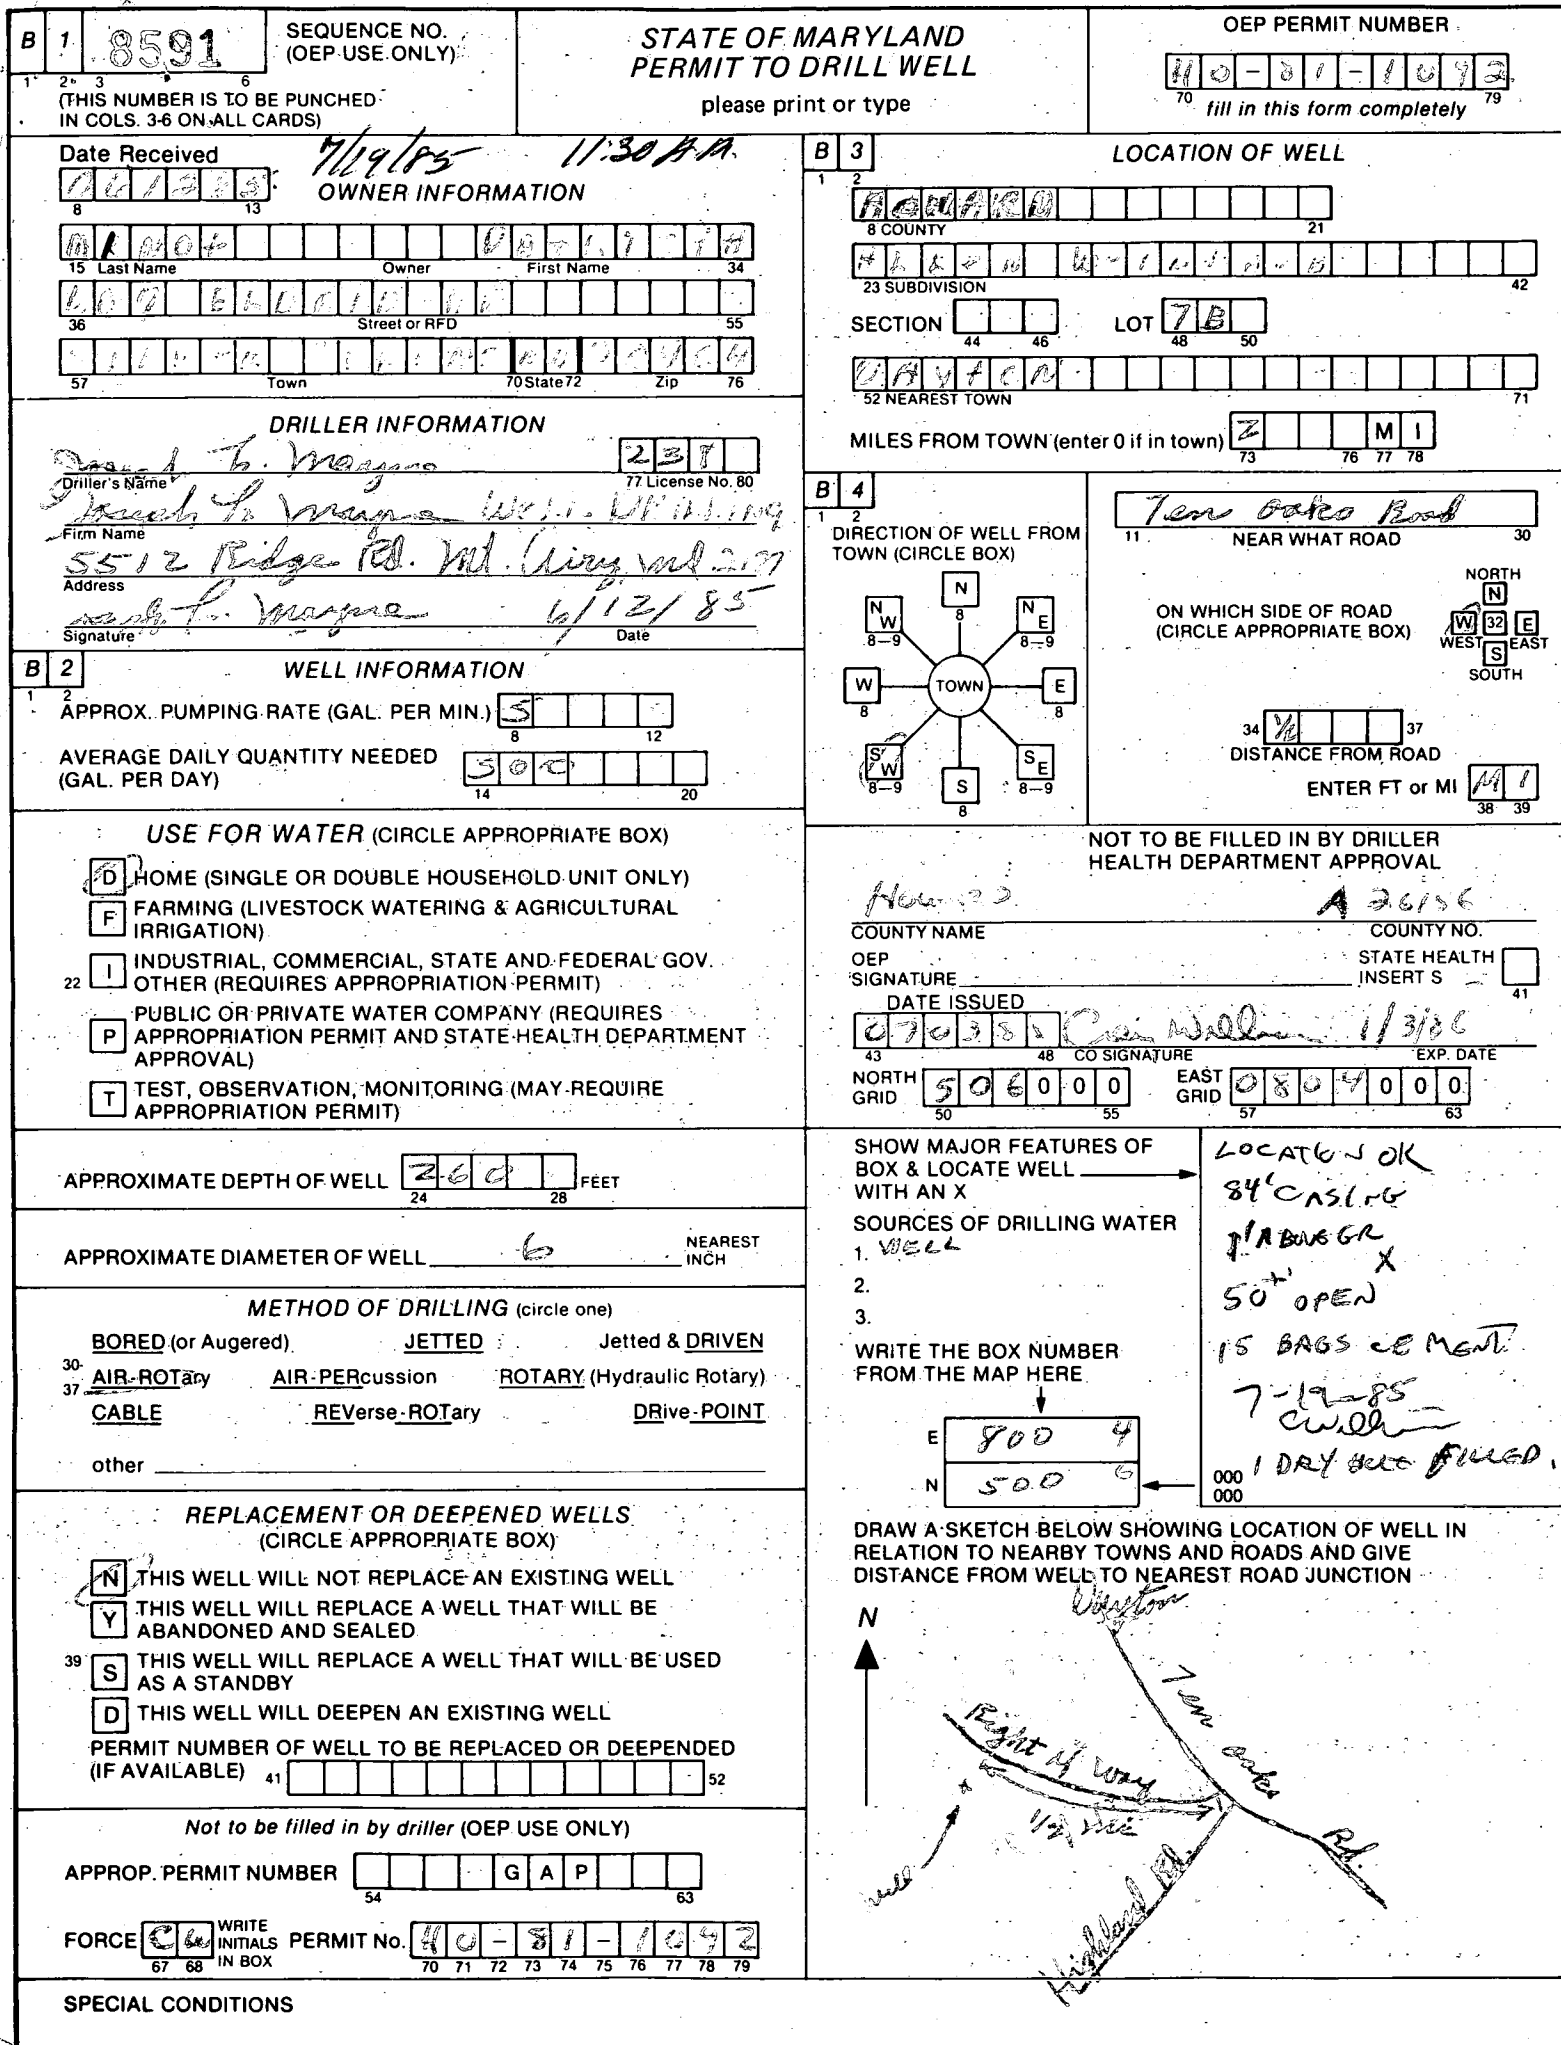 B 1 8591
SEQUENCE NO.
(OEP USE ONLY)
1 2 3 6
(THIS NUMBER IS TO BE PUNCHED
IN COLS. 3-6 ON ALL CARDS)
STATE OF MARYLAND
PERMIT TO DRILL WELL
please print or type
OEP PERMIT NUMBER
HO-81-1092
70 fill in this form completely 79
Date Received
7/19/85 11:30 A.M.
8 13
OWNER INFORMATION
15 Last Name Owner First Name 34
36 Street or RFD 55
57 Town 70 State 72 Zip 76
DRILLER INFORMATION
L. Mayne 238
Driller's Name 77 License No. 80
Joseph L. Mayne WELL DRILLING
Firm Name
5512 Ridge Rd. Mt. Airy Md
Address
L. Mayne 6/12/85
Signature Date
B 2 WELL INFORMATION
1 2
APPROX. PUMPING RATE (GAL. PER MIN.) 5
8 12
AVERAGE DAILY QUANTITY NEEDED
(GAL. PER DAY) 500
14 20
USE FOR WATER (CIRCLE APPROPRIATE BOX)
D HOME (SINGLE OR DOUBLE HOUSEHOLD UNIT ONLY)
F FARMING (LIVESTOCK WATERING & AGRICULTURAL
IRRIGATION)
22 I INDUSTRIAL, COMMERCIAL, STATE AND FEDERAL GOV.
OTHER (REQUIRES APPROPRIATION PERMIT)
P PUBLIC OR PRIVATE WATER COMPANY (REQUIRES
APPROPRIATION PERMIT AND STATE HEALTH DEPARTMENT
APPROVAL)
T TEST, OBSERVATION, MONITORING (MAY REQUIRE
APPROPRIATION PERMIT)
APPROXIMATE DEPTH OF WELL 260 FEET
24 28
APPROXIMATE DIAMETER OF WELL 6 NEAREST
INCH
METHOD OF DRILLING (circle one)
BORED (or Augered) JETTED Jetted & DRIVEN
30-
37 AIR-ROTary AIR-PERcussion ROTARY (Hydraulic Rotary)
CABLE REVerse-ROTary DRive-POINT
other
REPLACEMENT OR DEEPENED WELLS
(CIRCLE APPROPRIATE BOX)
N THIS WELL WILL NOT REPLACE AN EXISTING WELL
Y THIS WELL WILL REPLACE A WELL THAT WILL BE
ABANDONED AND SEALED
39 S THIS WELL WILL REPLACE A WELL THAT WILL BE USED
AS A STANDBY
D THIS WELL WILL DEEPEN AN EXISTING WELL
PERMIT NUMBER OF WELL TO BE REPLACED OR DEEPENDED
(IF AVAILABLE) 41 52
Not to be filled in by driller (OEP USE ONLY)
APPROP. PERMIT NUMBER GAP
54 63
FORCE CW WRITE
INITIALS
IN BOX
67 68
PERMIT No. HO-81-1092
70 71 72 73 74 75 76 77 78 79
SPECIAL CONDITIONS
B 3 LOCATION OF WELL
1 2
HOWARD
8 COUNTY 21
23 SUBDIVISION 42
SECTION LOT 7B
44 46 48 50
DAYTON
52 NEAREST TOWN 71
MILES FROM TOWN (enter 0 if in town) 2 MI
73 76 77 78
B 4
1 2
DIRECTION OF WELL FROM
TOWN (CIRCLE BOX)
N
8
NW NE
8-9 8-9
W TOWN E
8 8
SW SE
8-9 S 8-9
8
Ten Oaks Road
11 NEAR WHAT ROAD 30
ON WHICH SIDE OF ROAD
(CIRCLE APPROPRIATE BOX)
NORTH
N
W 32 E
WEST EAST
S
SOUTH
34 1/2 37
DISTANCE FROM ROAD
ENTER FT or MI MI
38 39
NOT TO BE FILLED IN BY DRILLER
HEALTH DEPARTMENT APPROVAL
Howard A
COUNTY NAME COUNTY NO.
OEP
SIGNATURE
STATE HEALTH
INSERT S
41
DATE ISSUED
070385 1/3/86
43 48 CO SIGNATURE EXP. DATE
NORTH
GRID 506000
50 55
EAST
GRID 0804000
57 63
SHOW MAJOR FEATURES OF
BOX & LOCATE WELL
WITH AN X
SOURCES OF DRILLING WATER
1. WELL
2.
3.
WRITE THE BOX NUMBER
FROM THE MAP HERE
E 800 4
N 500 6
000
000
LOCATION OK
84' CASING
1' ABOVE GR
X
50+' OPEN
15 BAGS CEMENT
7-19-85
1 DRY HOLE FILLED.
DRAW A SKETCH BELOW SHOWING LOCATION OF WELL IN
RELATION TO NEARBY TOWNS AND ROADS AND GIVE
DISTANCE FROM WELL TO NEAREST ROAD JUNCTION
Dayton
N
Ten Oaks Rd.
Right of Way
1/2 Mi
well
Highland Rd.